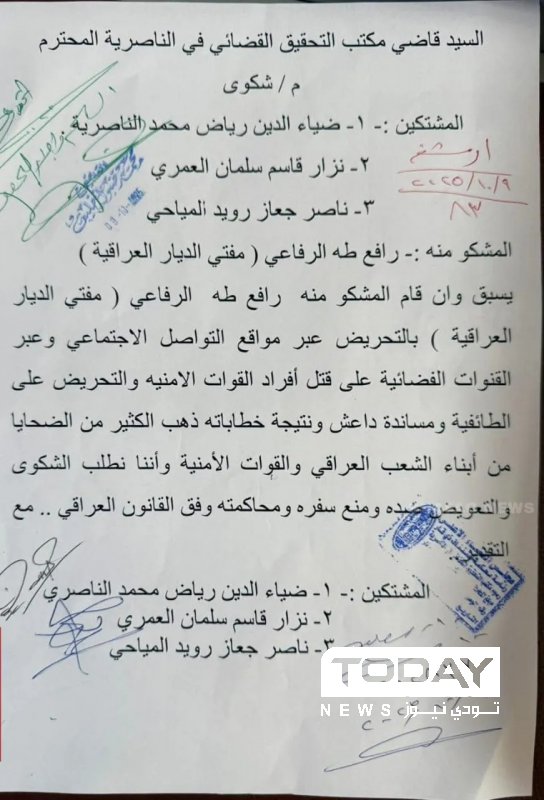 السيد قاضي مكتب التحقيق القضائي في الناصرية المحترم
م / شكوى
المشتكين :- ١- ضياء الدين رياض محمد الناصرية
٢- نزار قاسم سلمان العمري
٣- ناصر جعاز رويد المياحي
٢٠٢٥/١٠/٩
٨٣
المشكو منه :- رافع طه الرفاعي ( مفتي الديار العراقية )
يسبق وان قام المشكو منه رافع طه الرفاعي ( مفتي الديار
العراقية ) بالتحريض عبر مواقع التواصل الاجتماعي وعبر
القنوات الفضائية على قتل أفراد القوات الامنيه والتحريض على
الطائفية ومساندة داعش ونتيجة خطاباته ذهب الكثير من الضحايا
من أبناء الشعب العراقي والقوات الأمنية وأننا نطلب الشكوى
والتعويض ضده ومنع سفره ومحاكمته وفق القانون العراقي .. مع
التقدير
المشتكين :- ١- ضياء الدين رياض محمد الناصري
٢- نزار قاسم سلمان العمري
٣- ناصر جعاز رويد المياحي
TODAY
NEWS تودي نيوز